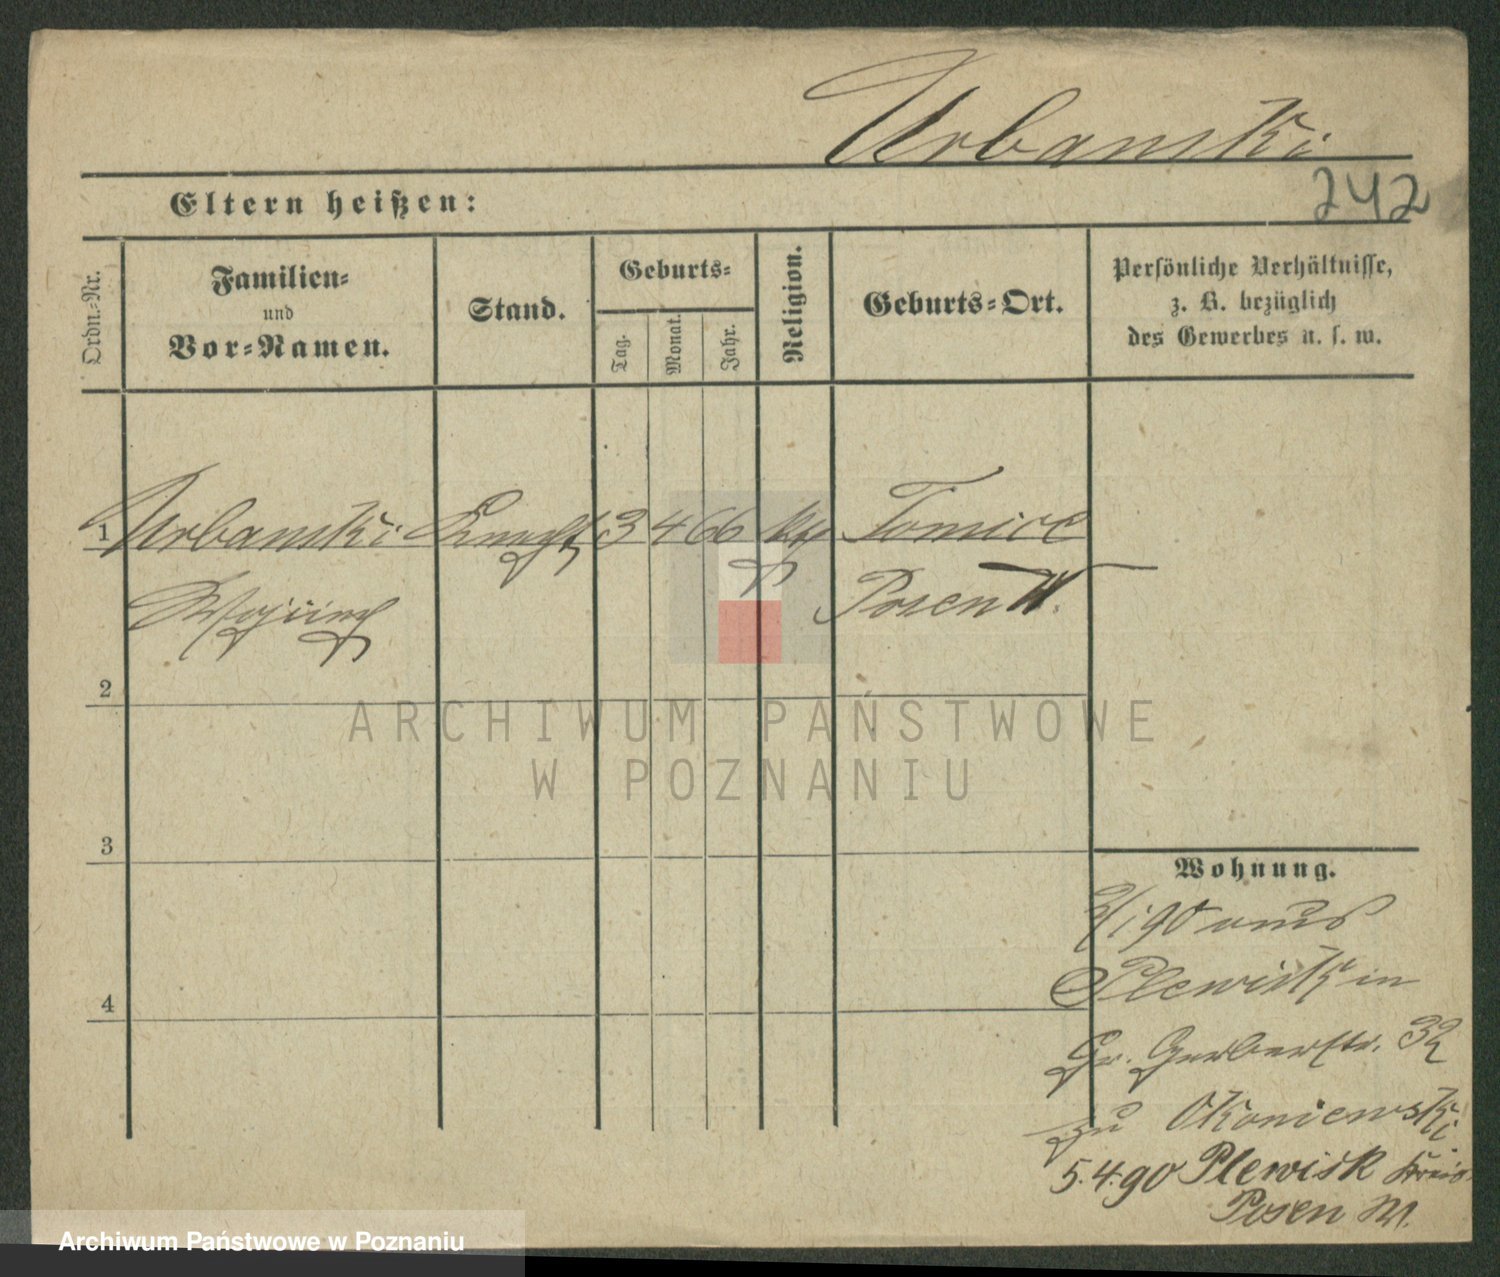 Urbanski
242
Eltern heißen:
Ordn.-Nr.
Familien-
und
Vor-Namen.
Stand.
Geburts-
Tag.
Monat.
Jahr.
Religion.
Geburts-Ort.
Persönliche Verhältnisse,
z. B. bezüglich
des Gewerbes u. s. w.
1 Urbanski Knecht 3 4 66 kth Tomice
Wojciech Posen W.
2
ARCHIWUM PAŃSTWOWE
W POZNANIU
3
Wohnung.
2/1 90 aus
Plewisk in
4
Gr. Gerberstr. 32
zu Okoniewski
5.4.90 Plewisk Kreis
Posen W.
Archiwum Państwowe w Poznaniu